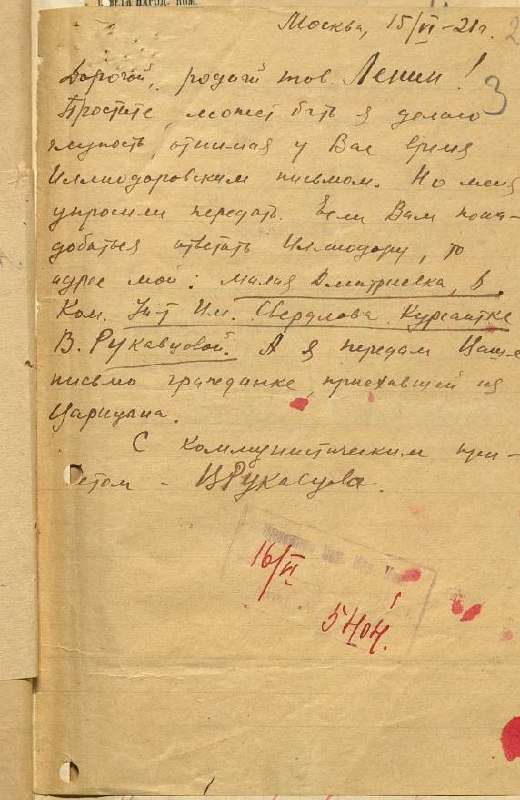 Москва, 15/VI-21г.
3
Дорогой, родной тов. Ленин!
Простите, может быть я делаю
глупость, отнимая у Вас время
Иллиодоровским письмом. Но меня
упросили передать. Если Вам пона-
добиться ответить Иллиодору, то
адрес мой: Малая Дмитровка, 6.
Ком. Ун-т Им. Свердлова. Курсантке
В. Рукавцовой. А я передам Ваше
письмо гражданке, приехавшей из
Царицына.
С коммунистическим при-
ветом - ВРукавцова.
16/VI